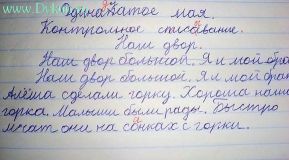 www.Dvk0.ru
Одинадатое мая.
Контрольное списавание.
Наш двор.
Наш двор большой. Я и мой бра
Наш двор большое. Я и мой бра
Алёша сделали горку. Хороша наша
горка. Малыши были рады. Быстро
мчат они на санках с горки.